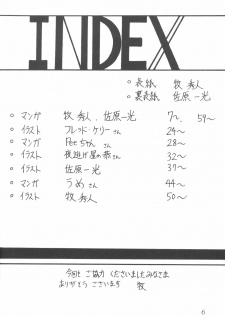 INDEX
○ 表紙 牧 秀人
○ 裏表紙 佐原 一光
○ マンガ 牧 秀人、佐原 一光 7〜、59〜
○ イラスト フレッド・ケリーさん 24〜
○ マンガ Peeちゃん 28〜
○ イラスト 夜逃げ屋の恭さん 32〜
○ イラスト 佐原 一光 37〜
○ マンガ うめさん 44〜
○ イラスト 牧 秀人 50〜
今回も ご協力 くださいましたみなさま
ありがとう ございます 牧
6